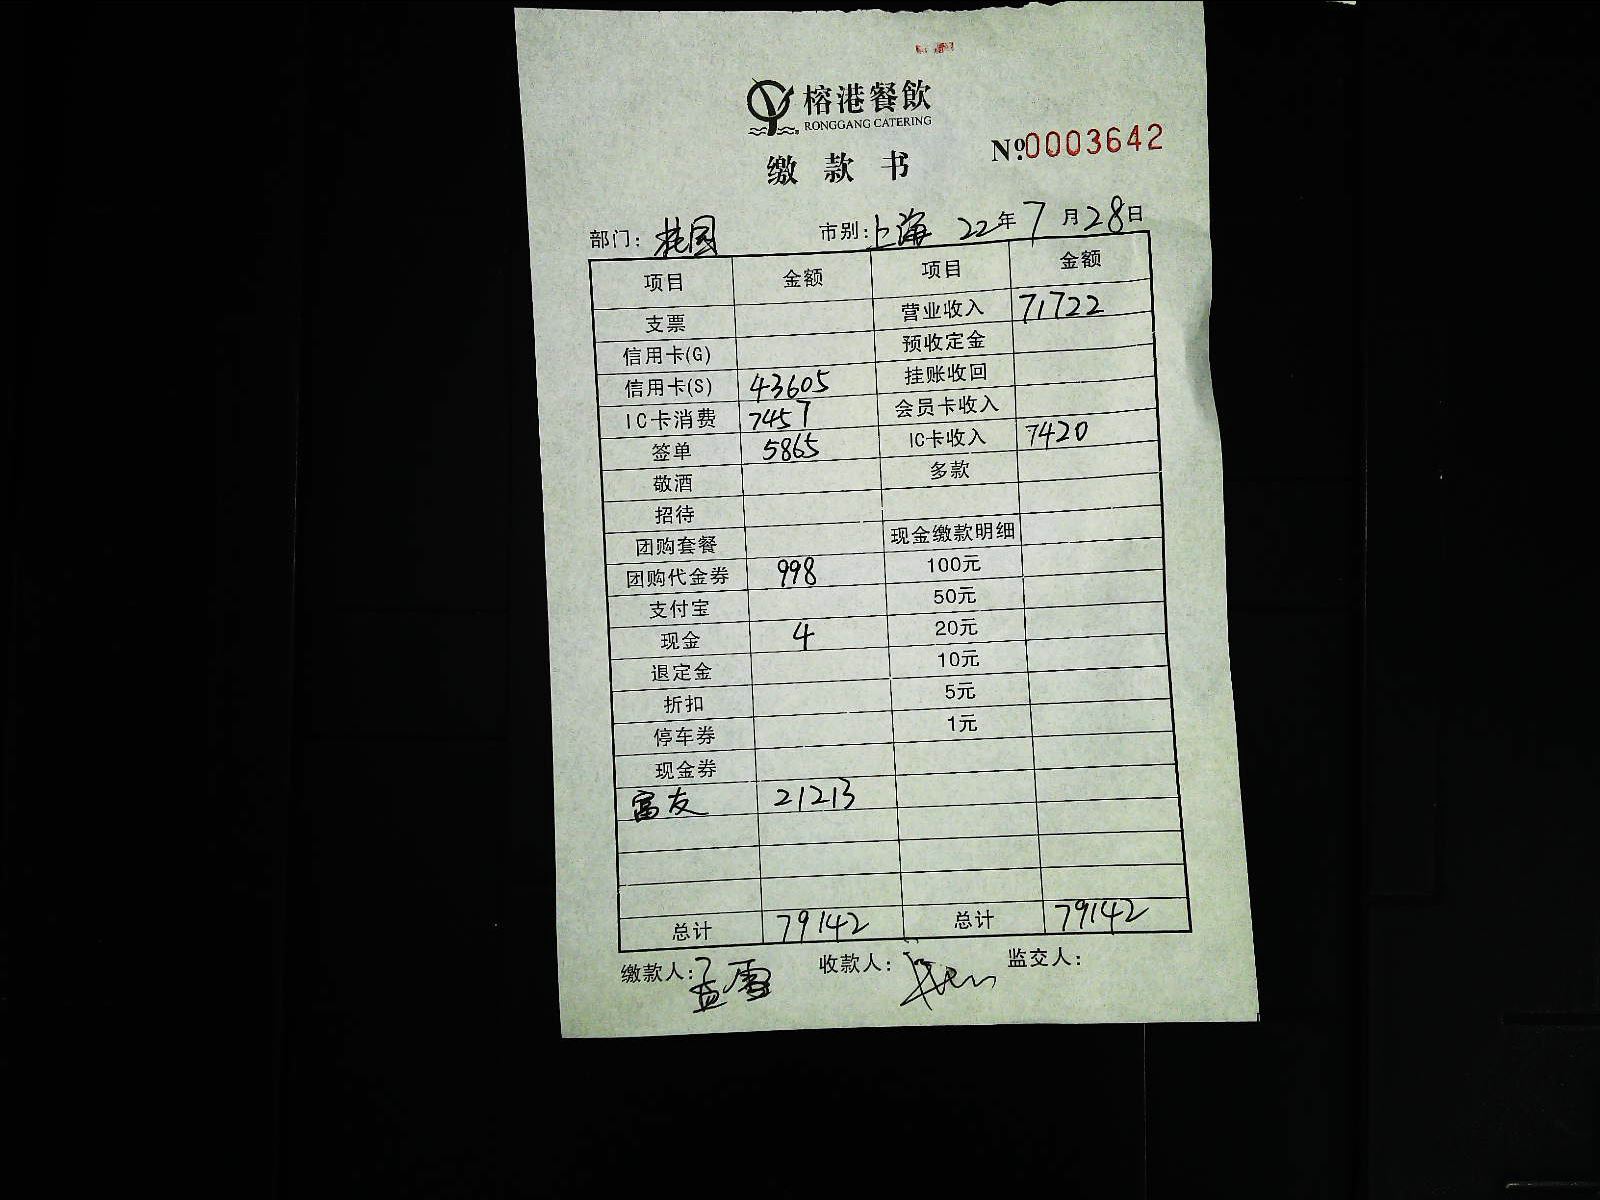 榕港餐飲
RONGGANG CATERING
No.0003642
缴款书
部门：桂园 市别：上海 22年7月28日
项目 金额 项目 金额
支票 营业收入 71722
信用卡(G) 预收定金
信用卡(S) 43605 挂账收回
IC卡消费 7457 会员卡收入
签单 5865 IC卡收入 7420
敬酒 多款
招待
团购套餐 现金缴款明细
团购代金券 998 100元
支付宝 50元
现金 4 20元
退定金 10元
折扣 5元
停车券 1元
现金券
富友 21213
总计 79142 总计 79142
缴款人：孟雪 收款人： 监交人：